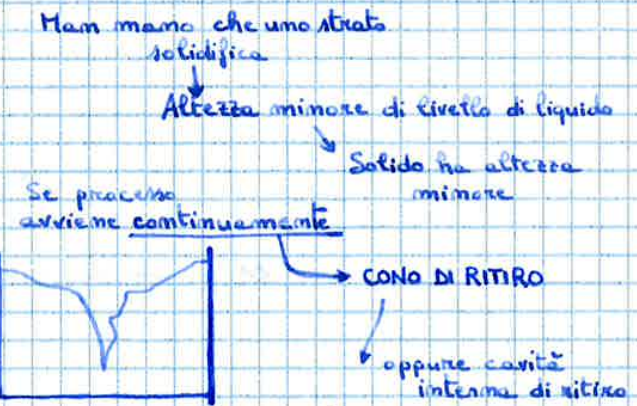 Man mano che uno strato
solidifica
Altezza minore di livello di liquido
Solido ha altezza
minore
Se processo
avviene continuamente
CONO DI RITIRO
oppure cavità
interna di ritiro